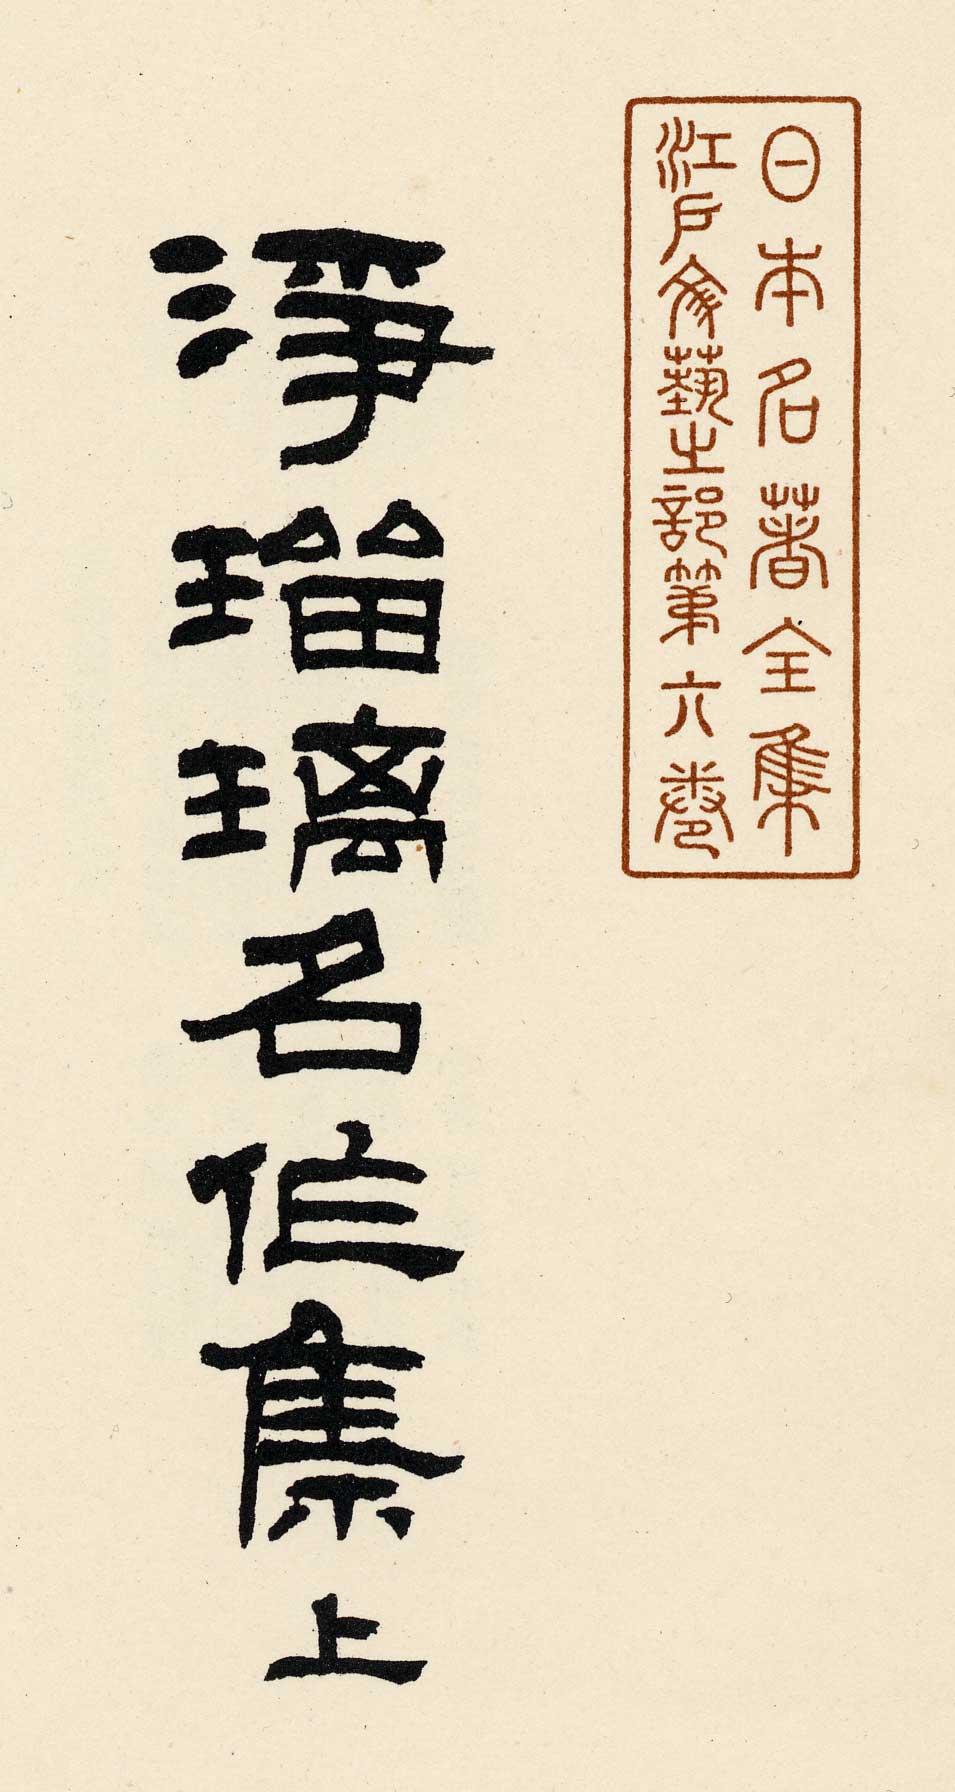 日本名著全集
江戸文藝之部第六卷
淨瑠璃名作集上